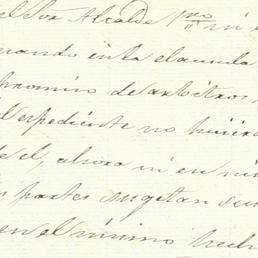 el Sor Alcalde 1ro ni
cuando en la clausula
promiso de arbitros
el espediente no hubiera
de el, ahora ni en
partes sugetan
en el mismo hecho